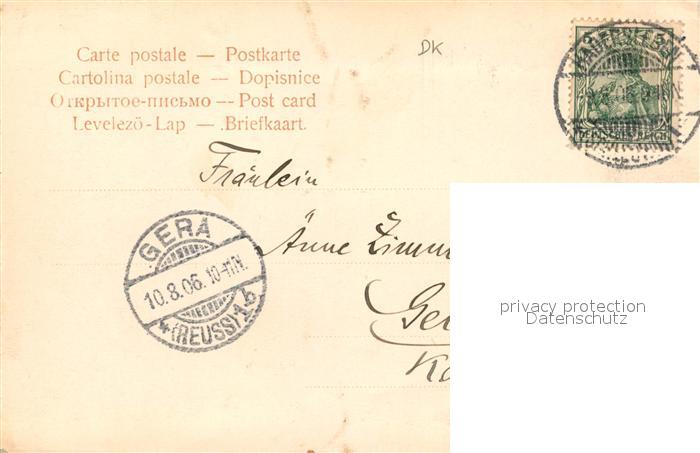 Carte postale — Postkarte
Cartolina postale — Dopisnice
Открытое-письмо -- Post card
Levelezö-Lap — Briefkaart.
DK
DEUTSCHES REICH
Fräulein
Änne Zimm
Ge
GERA
10.8.06. 10-11N.
* (REUSS) 1b
privacy protection
Datenschutz